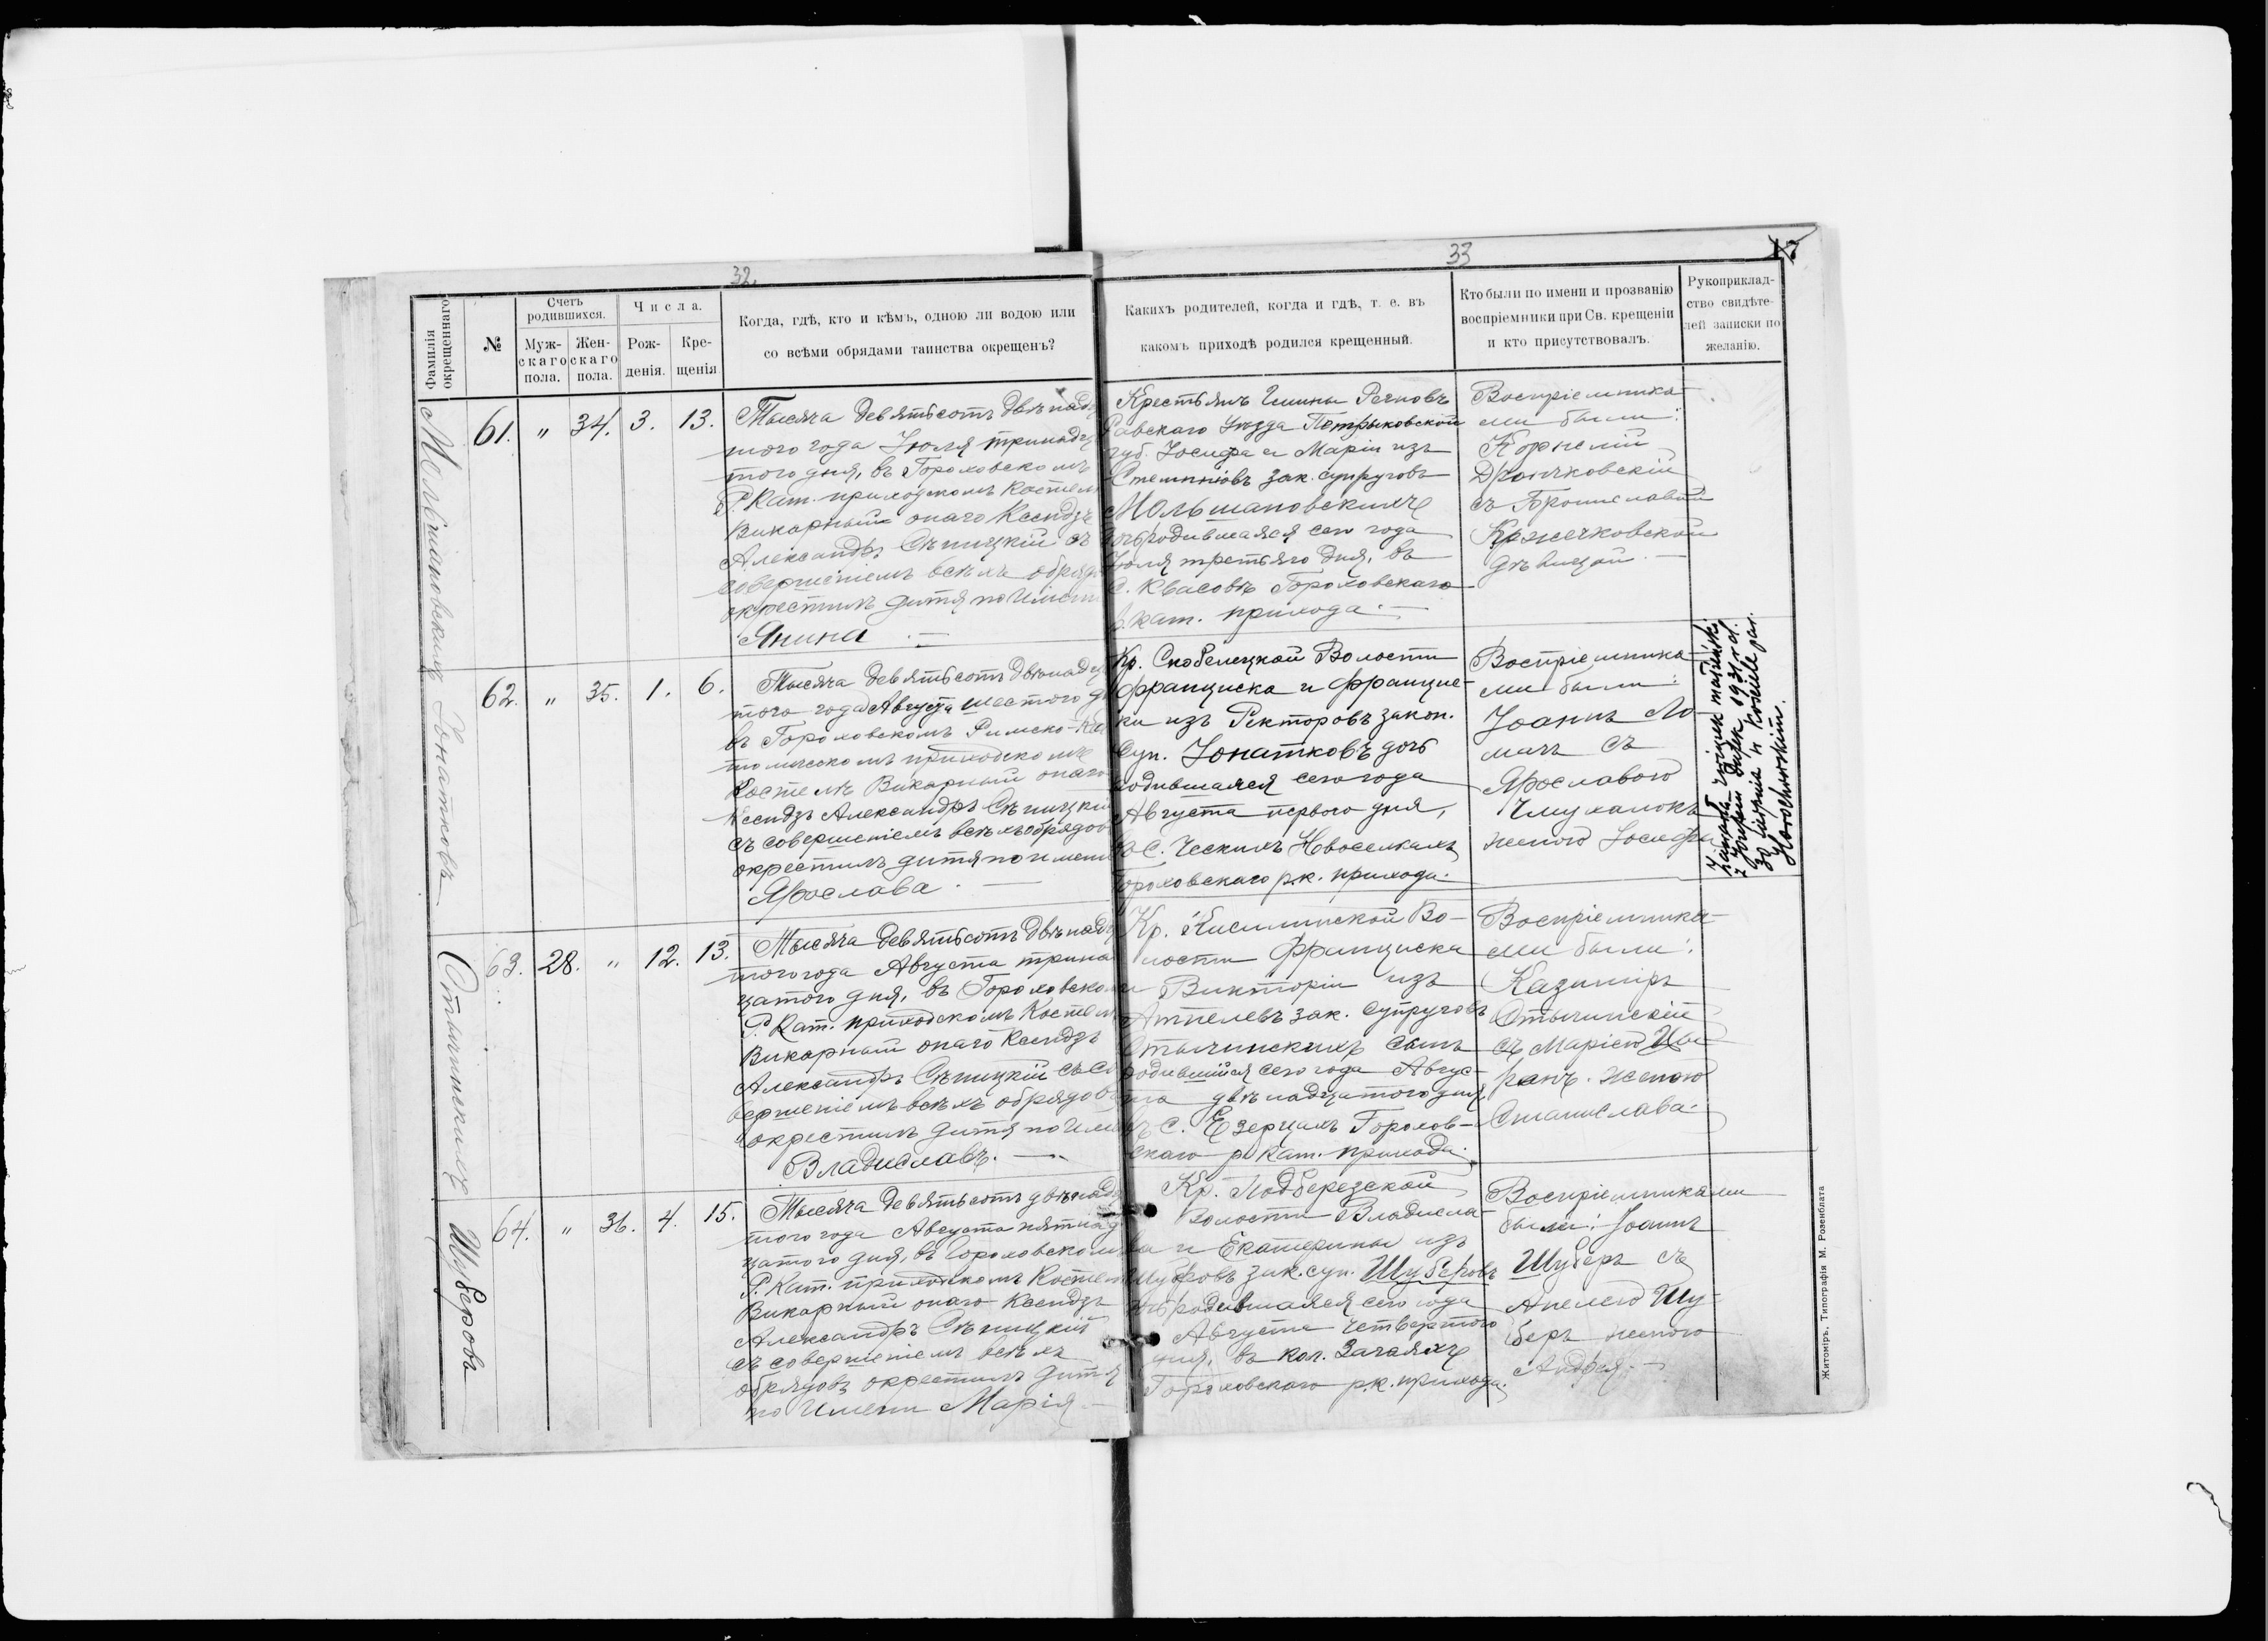 32.
33
17
Фамилія окрещеннаго
№
Счетъ родившихся.
Муж-скаго пола.
Жен-скаго пола.
Числа.
Рож-денія.
Кре-щенія
Когда, гдѣ, кто и кѣмъ, одною ли водою или
со всѣми обрядами таинства окрещенъ?
Какихъ родителей, когда и гдѣ, т. е. въ
какомъ приходѣ родился крещенный.
Кто были по имени и прозванію
воспріемники при Св. крещеніи
и кто присутствовалъ.
Рукоприклад-
ство свидѣте-
лей записки по
желанію.
61. " 34. 3. 13.
Тысяча девятьсотъ двѣнадца
таго года Іюля тринадца
таго дня, въ Гороховскомъ
Р. Кат. приходскомъ костелѣ
Викарный онаго Ксендзъ
Александръ Сѣницкій съ
совершеніемъ всѣхъ обрядо
окрестилъ дитя по имени
Янина
Крестьянъ Гмины
Равскаго Уѣзда Петрыковской
губ. Іосифа и Маріи изъ
зак. супруговъ
Мольшановскихъ
дочь родившаяся сего года
Іюля третьяго дня, въ
с. Квасовѣ Гороховскаго
р. кат. прихода.
Воспріемника-
ми были:
Корнелій
съ Брониславой
дѣвицей.
Іонатковъ
62. " 35. 1. 6.
Тысяча девятьсотъ двѣнадца
таго года Августа шестого д
въ Гороховскомъ Римско-Ка
толическомъ приходскомъ
Костелѣ Викарный онаго
Ксендзъ Александръ Сѣницкій
съ совершеніемъ всѣхъ обрядов
окрестилъ дитя по имени
Ярослава.
Кр. Скобелецкой Волости
Франциска и Францис-
ки изъ Ректоровъ закон.
Суп. Іонатковъ дочь
родившаяся сего года
Августа перваго дня,
въ с. Ческихъ Новоселкахъ
Гороховскаго р.к. прихода.
Воспріемника-
ми были:
Іоаннъ
съ
Ярославою
женою Іосифа
Zawarła związek małżeński
z Józefem 1931 r.
30 sierpnia w kościele par.
Horochowskim.
Отычинскихъ
63. 28. " 12. 13.
Тысяча девятьсотъ двѣнадца
таго года Августа трина
цатого дня, въ Гороховском
Р. Кат. приходскомъ Костел
Викарный онаго Ксендзъ
Александръ Сѣницкій съ со
вершеніемъ всѣхъ обрядовъ
окрестилъ дитя по име
Владиславъ.
Кр. Киселинской Во-
лости Франциска
и Викторіи изъ
зак. супруговъ
Отычинскихъ сынъ
родившійся сего года Авгус-
та двѣнадцатого дня,
въ с. Езерцахъ Горохов-
скаго р. кат. прихода.
Воспріемника-
ми были:
Казиміръ
Отычинскій
съ Маріею Цы-
ранъ. женою
Станислава.
Шуберова
64. " 36. 4. 15.
Тысяча девятьсотъ двѣнадца
таго года Августа пятнад
цатого дня, въ Гороховском
Р. Кат. приходскомъ Костел
Викарный онаго Ксендзъ
Александръ Сѣницкій
съ совершеніемъ всѣхъ
обрядовъ окрестилъ дитя
по имени Марія
Кр. Подберезской
Волости Владисла-
ва и Екатерины изъ
зак. суп. Шуберовъ
дочь родившаяся сего года
Августа четвертого
дня, въ кол.
Гороховскаго р.к. прихода.
Воспріемниками
были: Іоаннъ
Шуберъ съ
Анелею Шу-
беръ женою
Андрея.
Житоміръ, Типографія М. Розенблата